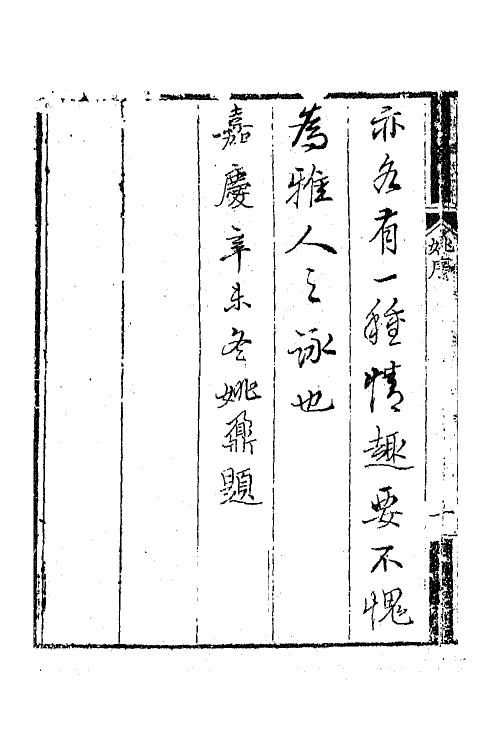 亦各有一種情趣要不愧
為雅人之詠也
嘉慶辛未冬姚鼐題
姚序
十